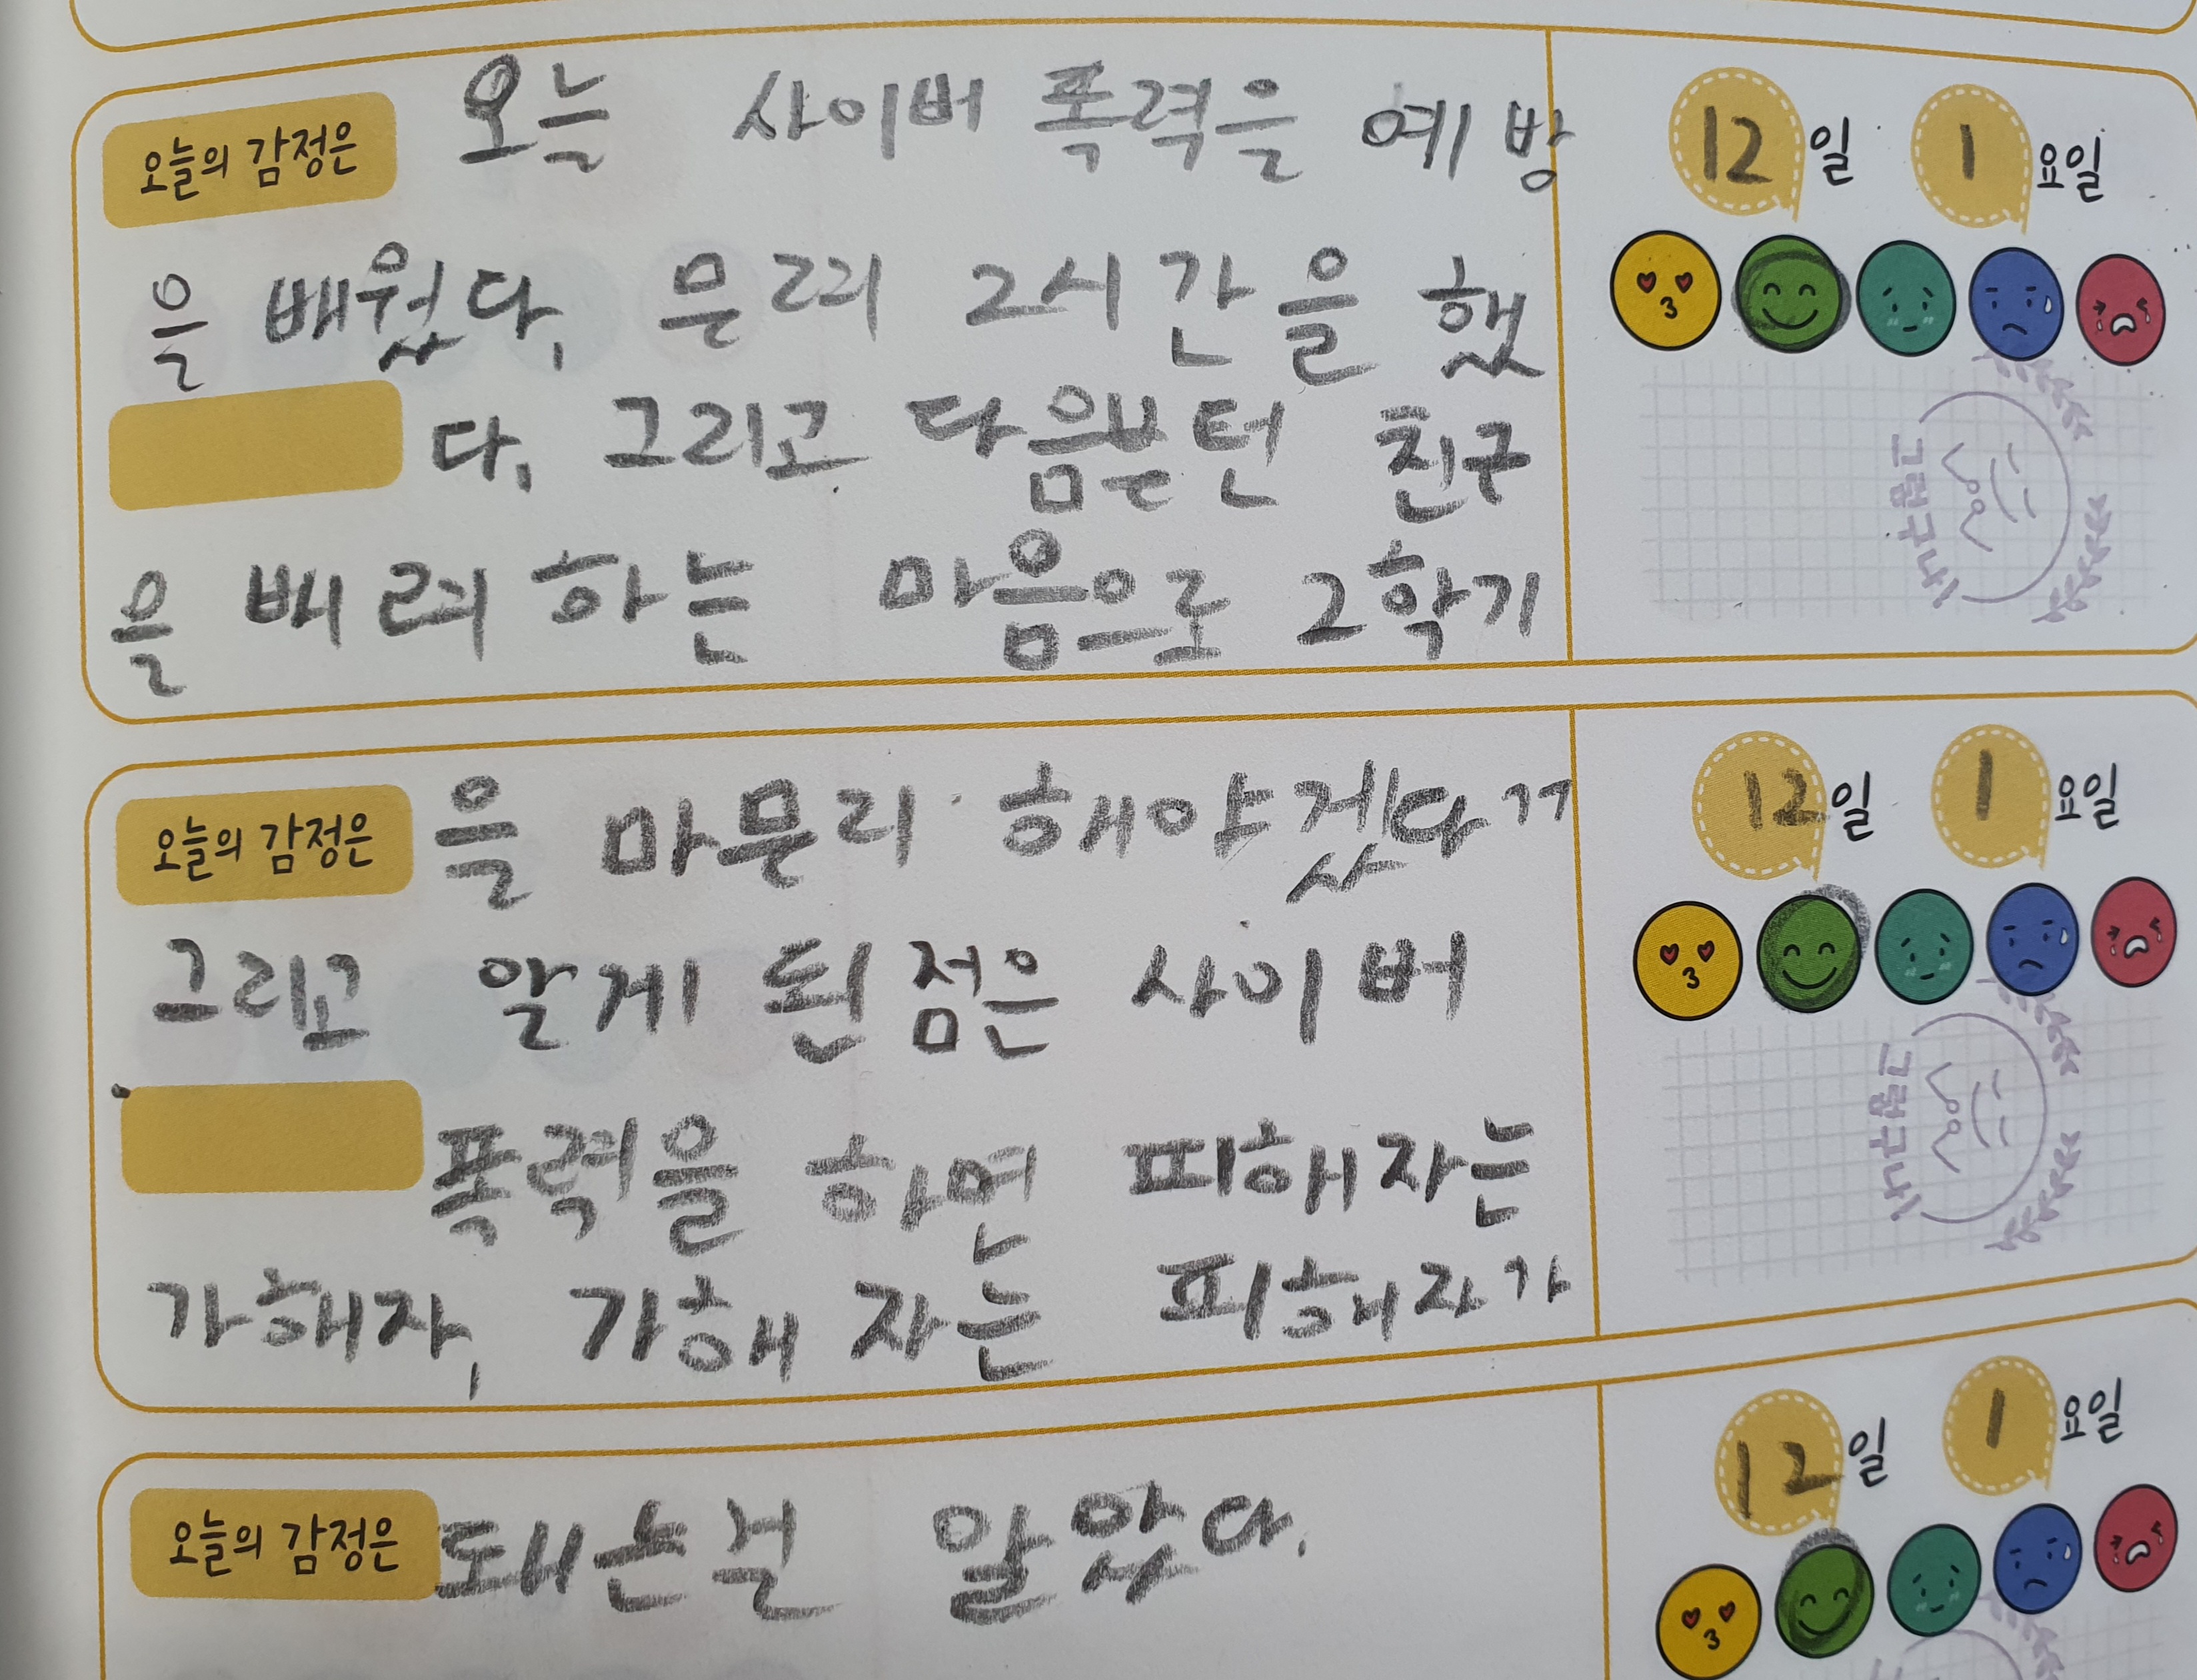 오늘의 감정은 오늘 사이버 폭력을 예방
12일 1요일
을 배웠다, 무려 2시간을 했
다, 그리고 다음부턴 친구
을 배려하는 마음으로 2학기
오늘의 감정은 을 마무리 해야겠다ㄱㄱ
12일 1요일
그리고 알게 된 점은 사이버
폭력을 하면 피해자는
가해자, 가해자는 피해자가
오늘의 감정은 돼는걸 알았다.
12일 1요일